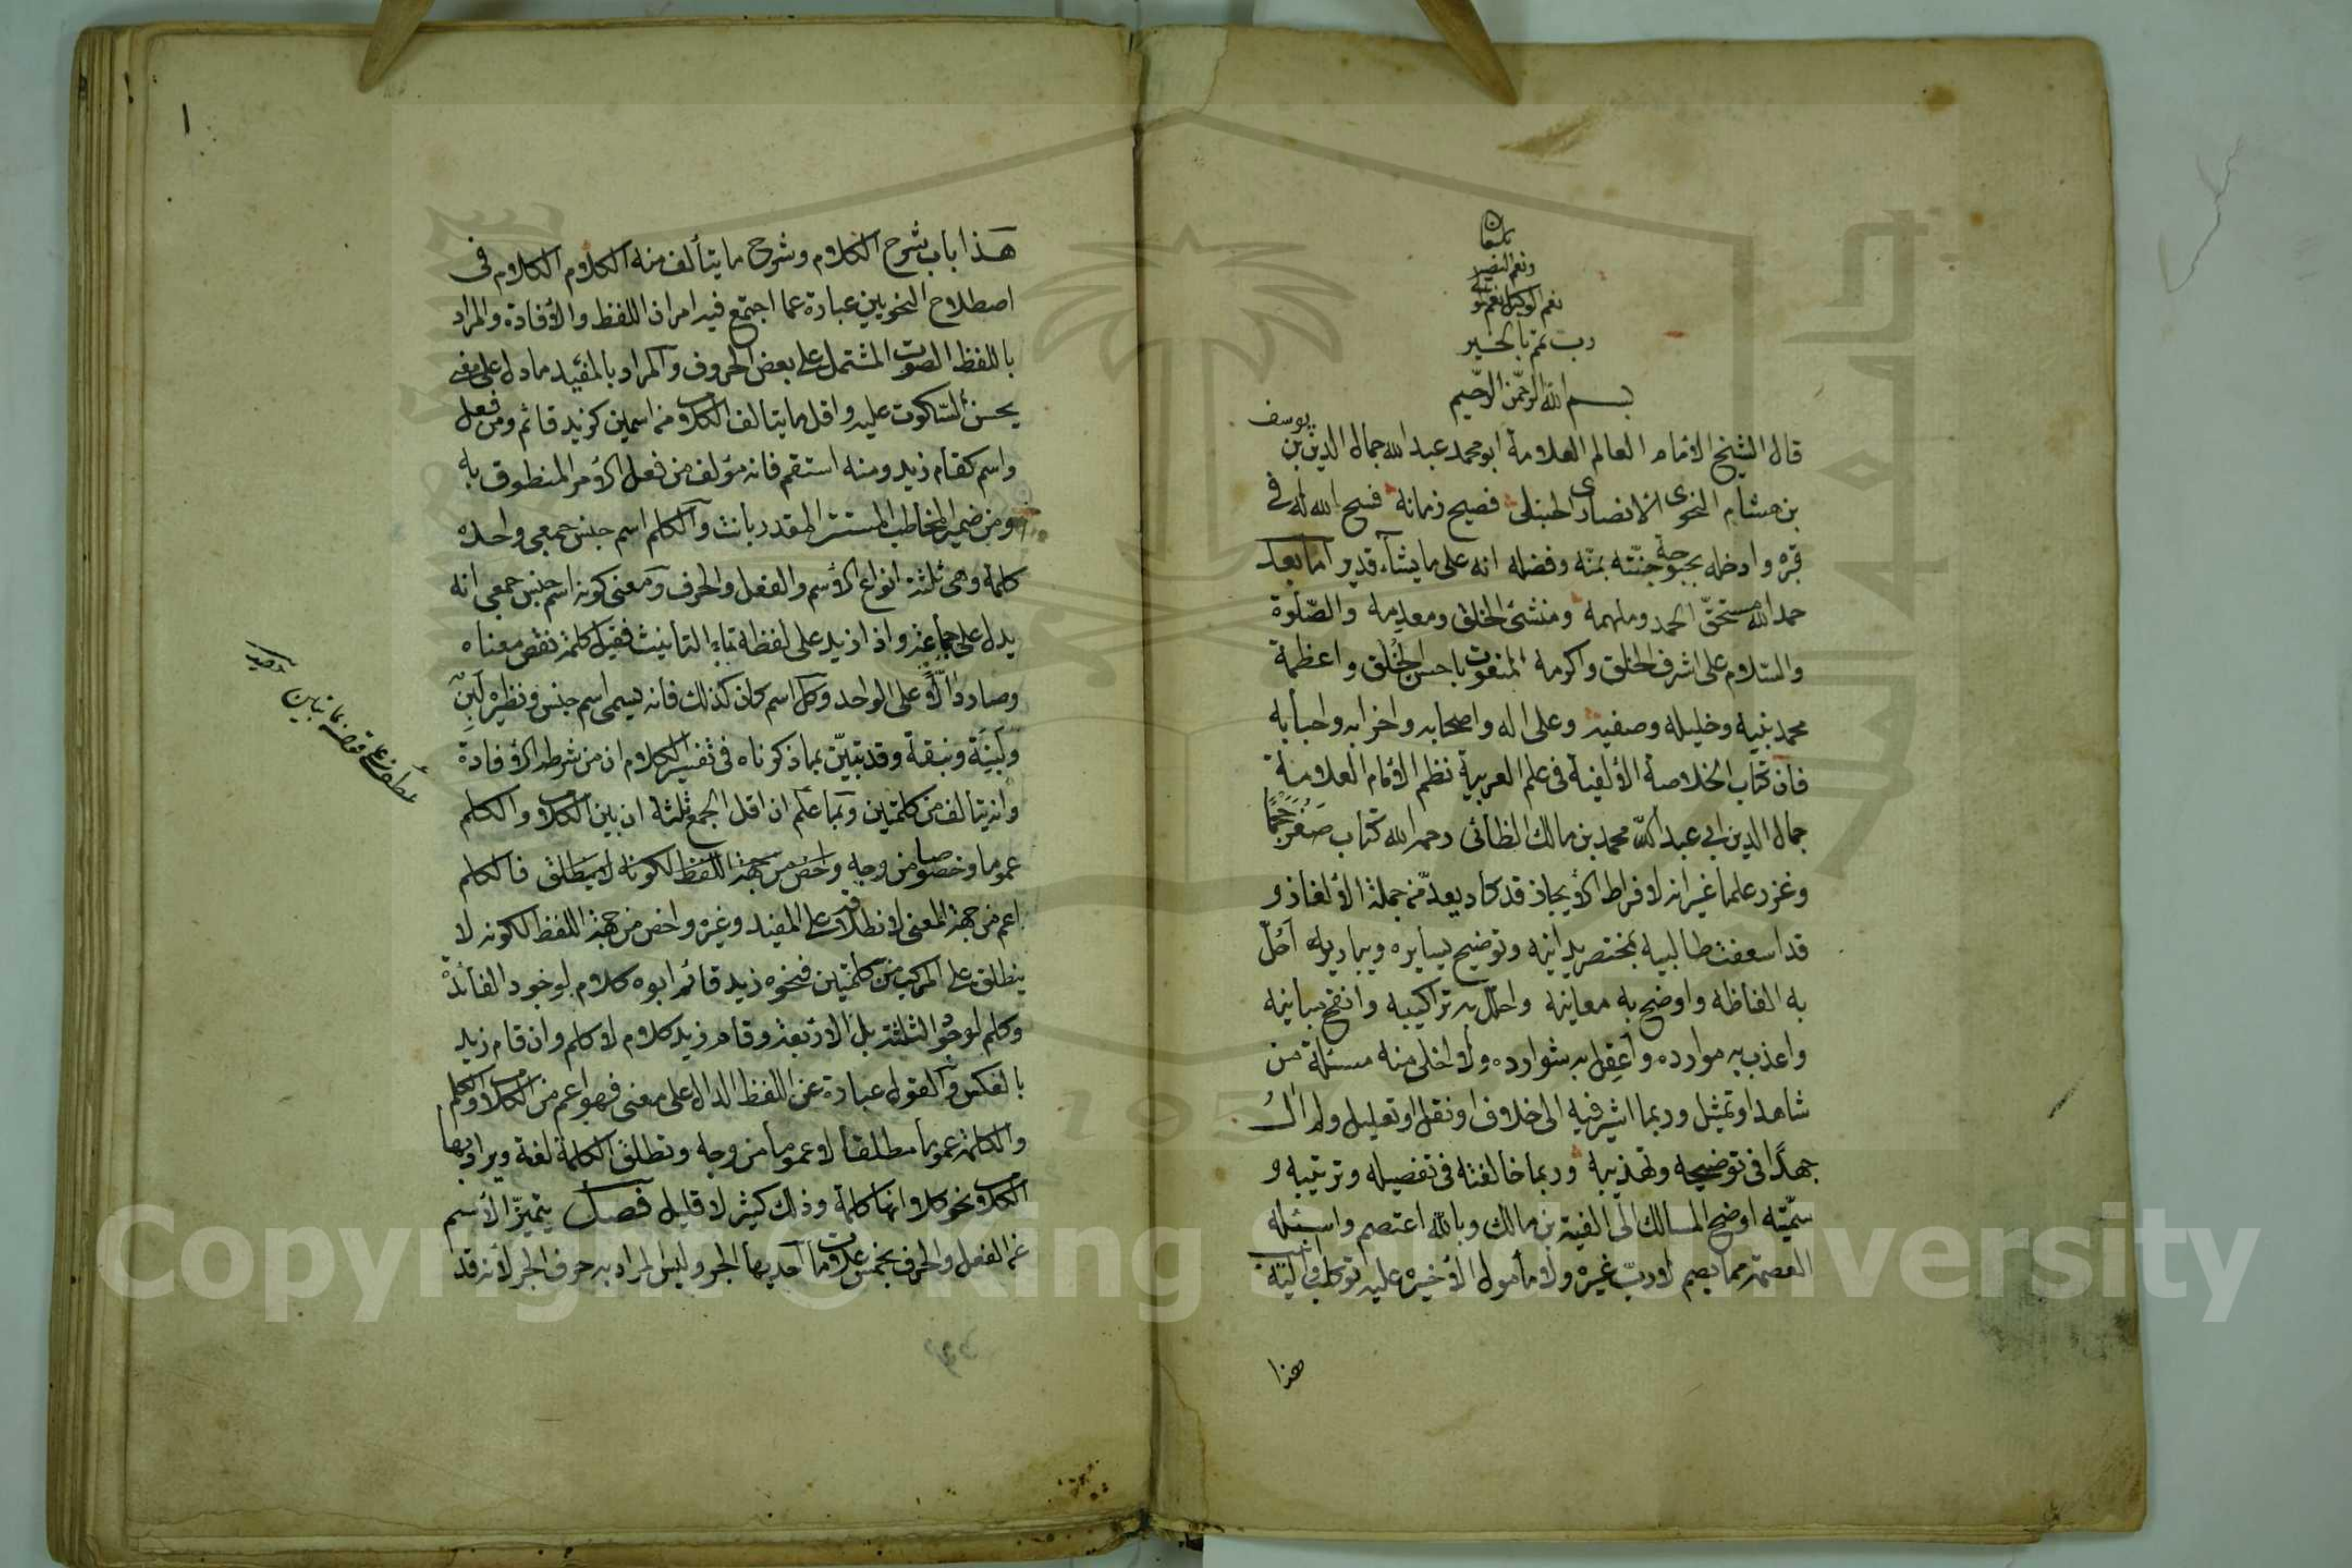 ونعم النصير
نعم الوكيل نعم
رب تمم بالخير
بسم الله الرحمن الرحيم
يوسف
قال الشيخ الامام العالم العلامة ابو محمد عبد الله جمال الدين بن
بن هشام النحوى الانصارى الحنبلى فصيح زمانه فسح الله له فى
قبره وادخله بحبوحة جنّته بمنّه وفضله انه على ما يشاء قدير اما بعد
حمد الله مستحقّ الحمد وملهمه ومنشئ الخلق ومعدمه والصّلوة
والسّلام على اشرف الخلق واكرمه المنعوت باحسن الخُلق واعظمه
محمد نبيه وخليله وصفيه وعلى اله واصحابه واحزابه واحبابه
فان كتاب الخلاصة الألفية فى علم العربية نظم الأمام العلامة
جمال الدين ابي عبد الله محمد بن مالك الطائى رحمه الله كتاب صَغُرَ حَجْمًا
وغزر علما غير انه لافراط الأيجاز قد كاد يعدّ من جملة الألغاز و
قد اسعفت طالبيه بمختصر يدانيه وتوضيح يسايره ويباريه أحُلّ
به الفاظه واوضح به معانيه واحلّل به تراكيبه وانقح مبانيه
واعذب به موارده وأعقِل به شوارده ولا اخلى منه مسئلة من
شاهد او تمثيل وربما اشير فيه الى خلاف او نقل او تعليل ولم آلُ
جهدًا فى توضيحه وتهذيبه وربما خالفته فى تفصيله وترتيبه و
سمّيته اوضح المسالك الى الفية بن مالك وبالله اعتصم واسئله
العصمة مما يصم لا ربّ غيره ولا مأمول الأ خيره عليه توكلت واليه انيب
هذا
١
هَذا باب شرح الكلام وشرح ما يتألف منه الكلام الكلام فى
اصطلاح النحويين عبارة عما اجتمع فيه امران اللفظ والأفادة والمراد
باللفظ الصوت المشتمل على بعض الحروف والمراد بالمفيد ما دل على معنى
يحسن السّكوت عليه واقل ما يتالف الكلام من اسمين كزيد قائم ومن فعل
واسم كقام زيد ومنه استقم فانه مؤلف من فعل الأمر المنطوق به
ومن ضمير المخاطب المستتر المقدر بانت والكلم اسم جنس جمعى واحده
كلمة وهى ثلثة انواع الأسم والفعل والحرف ومعنى كونه اسم جنس جمعى انه
يدل على جماعة واذا زيد على لفظه تاء التانيث فقيل كلمة نقص معناه
وصار دالًّا على الواحد وكل اسم كان كذلك فانه يسمى اسم جنس ونظيره لَبِن
ولَبِنَة ونبقة وقد تبيّن بما ذكرناه فى تفسير الكلام ان من شرطه الأفادة
وانه يتالف من كلمتين وبما علم ان اقل الجمع ثلثة ان بين الكلام والكلم
عموما وخصوصا من وجه
اعم من جهة المعنى لانطلاقه على المفيد وغيره واخص من جهة اللفظ لكونه لا
ينطلق على المركب من كلمتين فنحوه زيد قائم ابوه كلام لوجود الفائدة
وكلم لوجود الثلثة بل الاربعة وقام زيد كلام لا كلم وان قام زيد
بالعكس والقول عبارة عن اللفظ الدال على معنى فهو اعم من الكلام والكلم
والكلمة عموما مطلقا لا عموما من وجه وتطلق الكلمة لغة ويراد بها
الكلام نحو كلا انها كلمة وذلك كثير لا قليل فصل يتميّز الأسم
عن الفعل والحرف بخمس علامات احديها الجر وليس المراد به حرف الجر لأنه قد